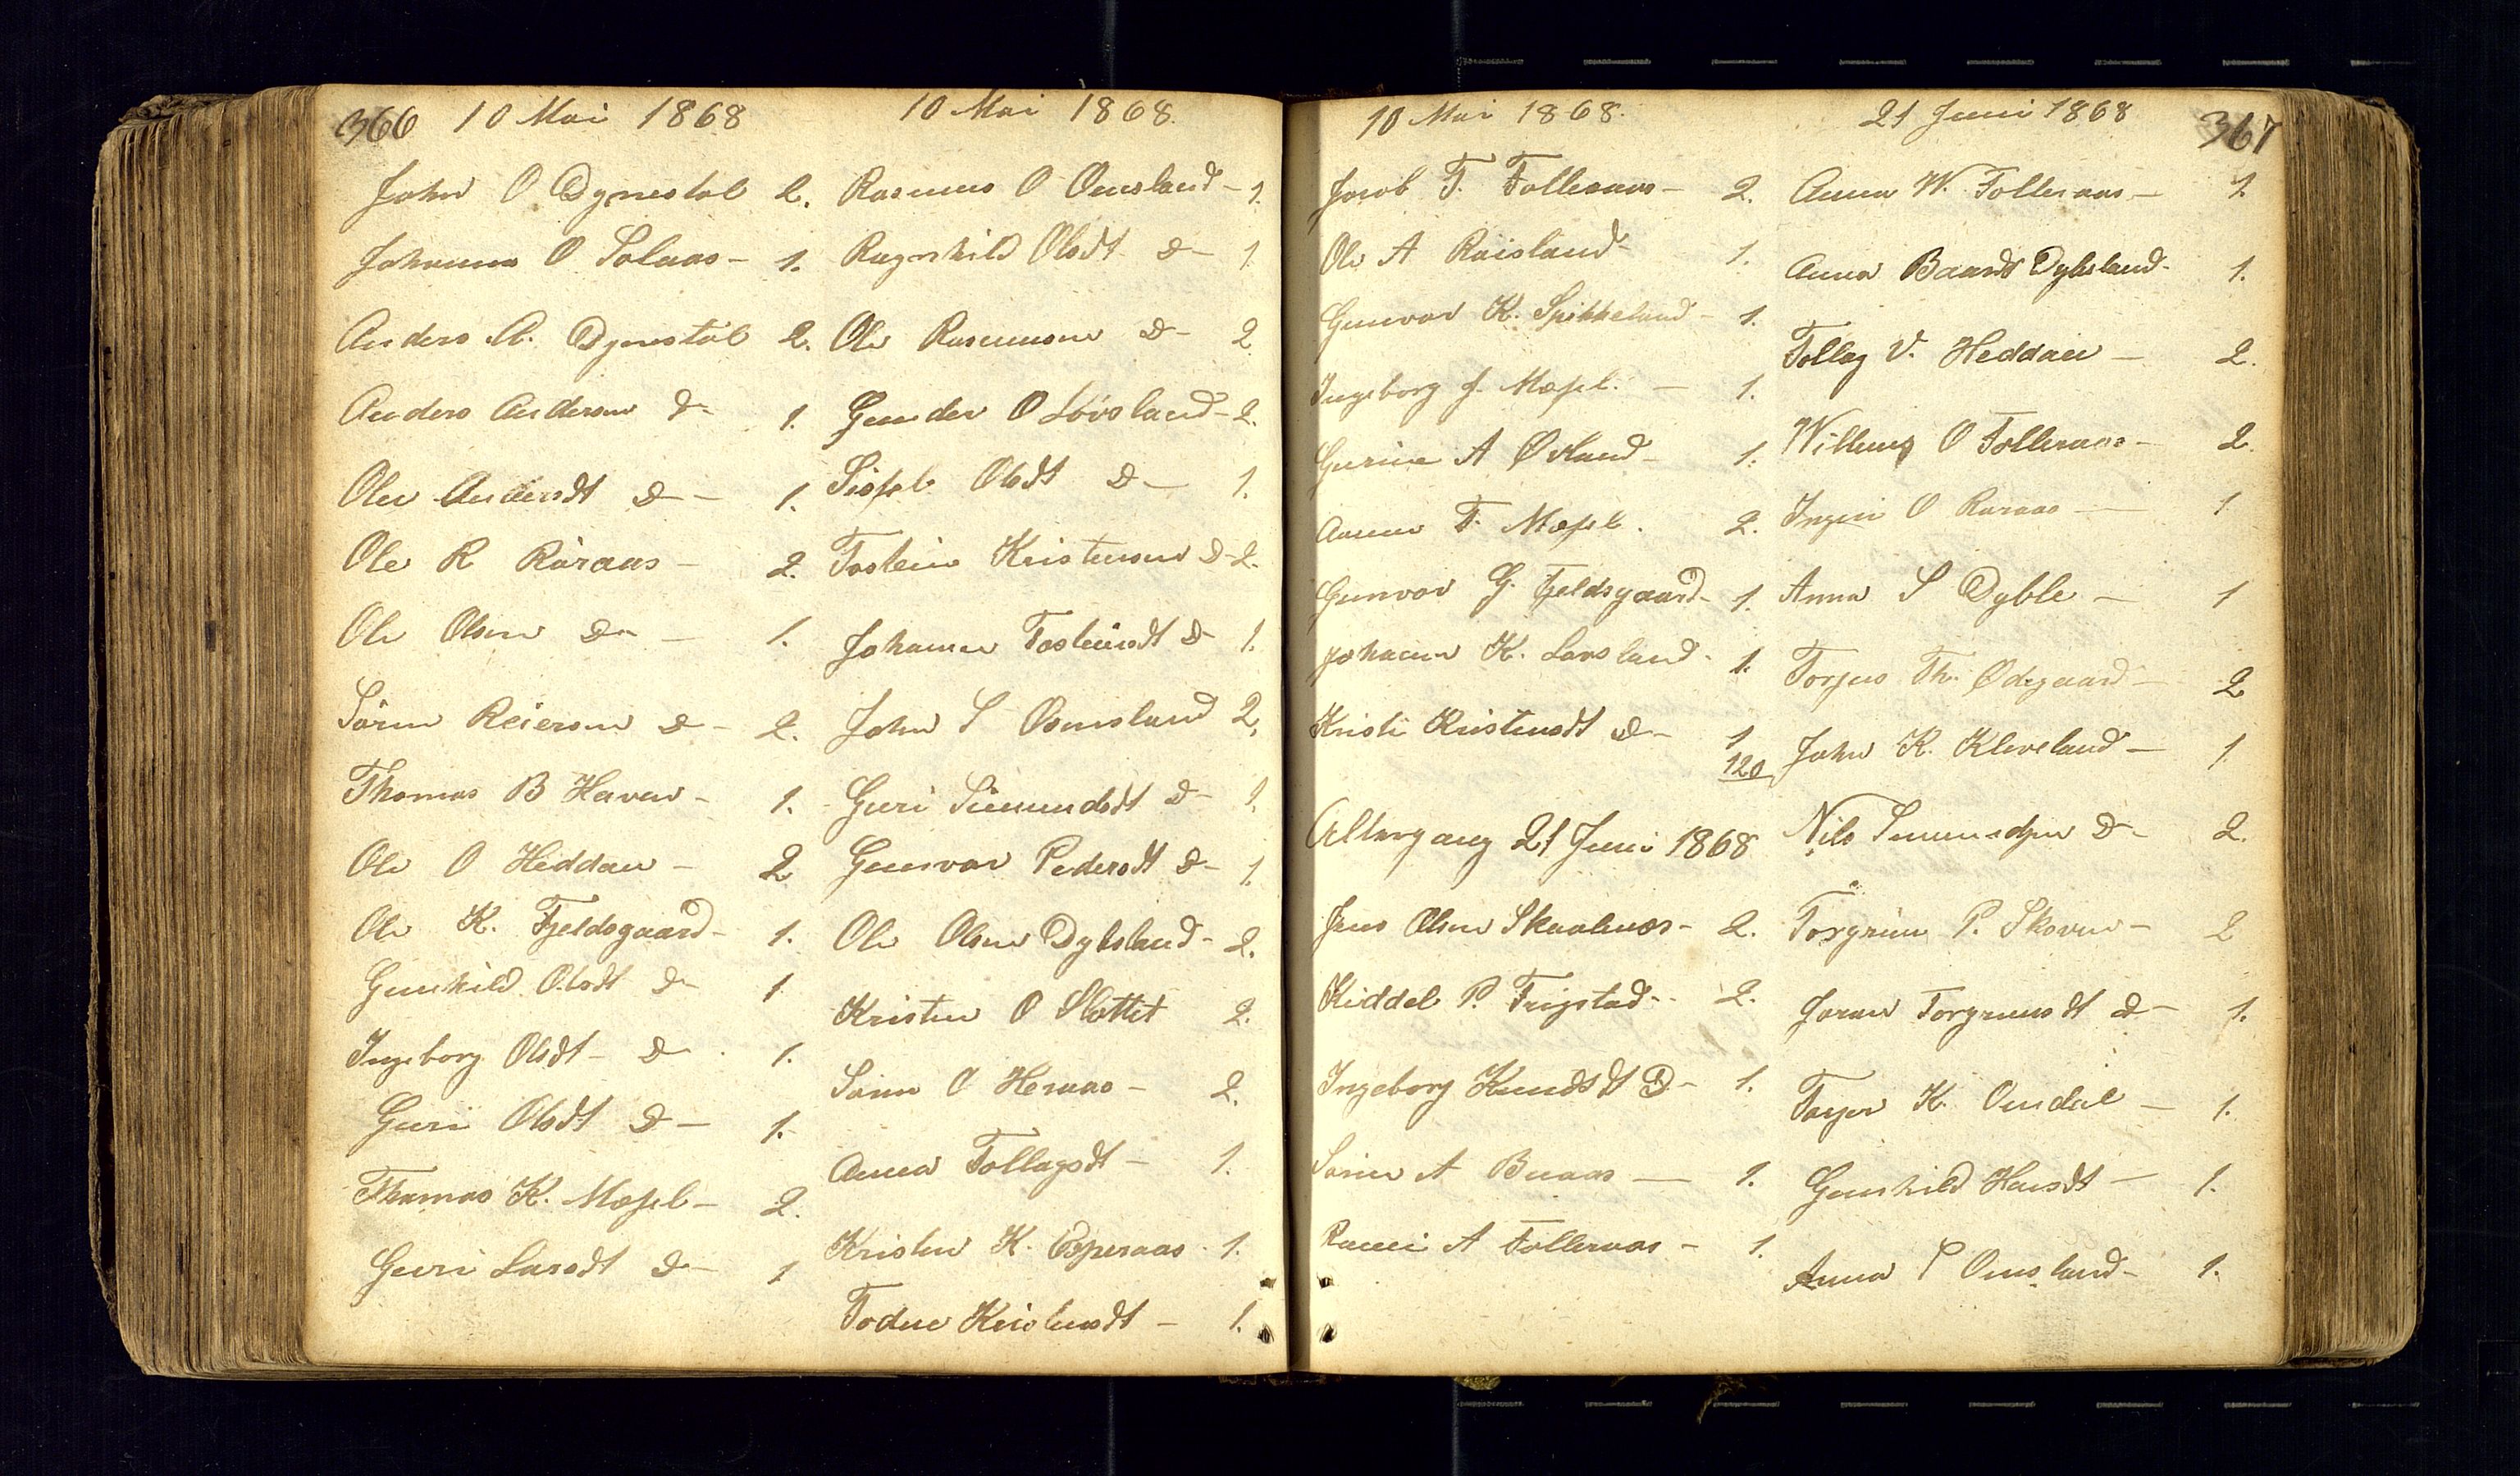 366 10 Mai 1868
John O Dynestöl 2.
Johanna O Solaas - 1.
Anders A. Dynestöl 2.
Anders Andersen D- 1.
Olev Andersdt D - 1.
Ole R Röraas - 2.
Ole Olsen D- - 1.
Sören Reiersen D - 2.
Thomas B Haven - 1.
Ole O Heddan - 2
Ole K. Fjeldsgaard - 1.
Gunhild Olsdt D- 1.
Ingeborg Olsdt - D - 1.
Guri Olsdt D - 1.
Thomas K. Mæsel - 2.
Guri Larsdt D- 1
10 Mai 1868.
Rasmus O Omsland - 1.
Ragnhild Olsdt D - 1
Ole Rasmusen D - 2
Gunder O Lövsland - 2.
Sissel Olsdt D - 1.
Tostein Kristensen D - 2.
Johanne Tosteinsdt D - 1.
John S Omsland 2,
Guri Simundsdt D - 1.
Gunvor Pedersdt D - 1.
Ole Olsen Dybsland - 2.
Kristen O Slottet 2.
Sören O Heraas - 2.
Anna Tollagsdt - 1.
Kristen K. Esperaas - 1.
Todne Kristensdt - 1.
10 Mai 1868.
Jacob T. Folleraas - 2.
Ole A Röisland 1.
Gunvor K. Spikkeland - 1.
Ingeborg J. Mæsel. - 1.
Gurine A Øsland - 1.
Aanon T. Mæsel. 2.
Gunvor G. Fjeldsgaard - 1.
Johanne K. Lovsland - 1.
Kristi Kristensdt D - 1
120
Altergang 21 Juni 1868
Jens Olsen Skaalenæs - 2.
Kiddel P. Frigstad - 2.
Ingeborg Knudsdt D - 1.
Sörine A Buaas - 1.
Rannei A Folleraas - 1.
21 Juni 1868 367
Anna W. Folleraas - 1.
Anna Baards Dybsland - 1.
Tollag V. Heddan - 2.
Willum O Folleraas - 2.
Ingeri O Röraas - 1
Anna S Dyble - 1
Torjus Th. Ødegaard - 2
John K. Kleveland - 1
Nils Simundsen D - 2.
Torgrim P. Skoven - 2
Joran Torgrimsdt D - 1.
Torjer K. Omdal - 1.
Gunhild Hansdt - 1.
Anna T Omsland - 1.